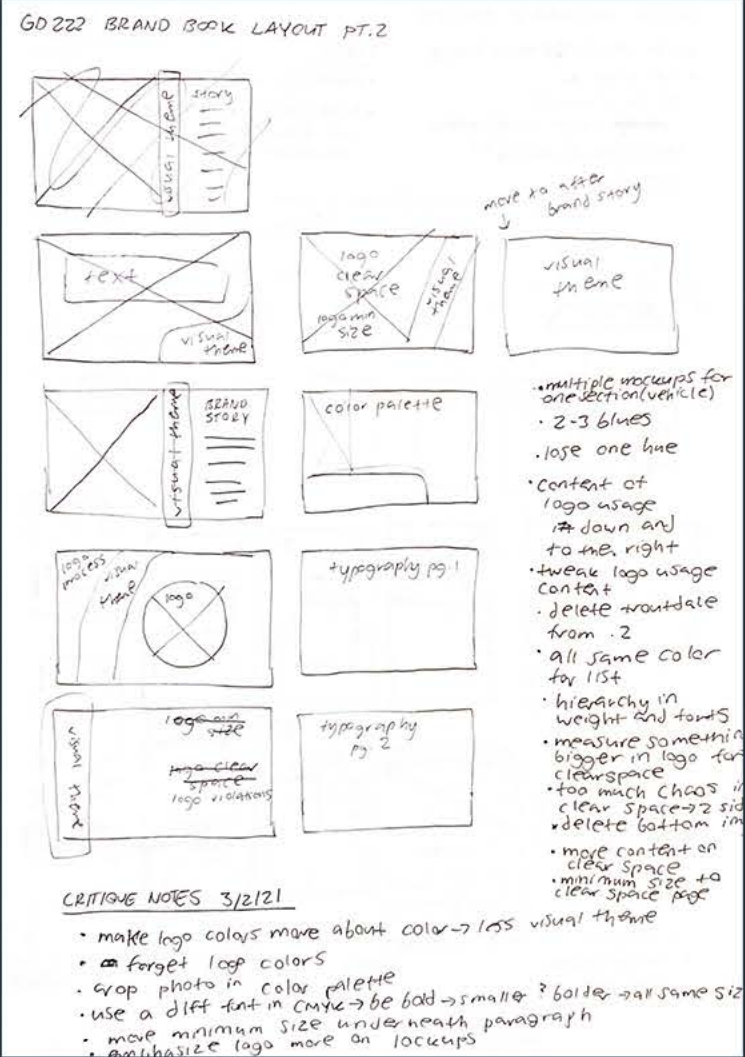 GD222 BRAND BOOK LAYOUT PT.2
visual theme
story
text
visual
theme
logo
clear
space
logo min
size
visual
theme
move to after
brand story
visual
theme
visual theme
BRAND
STORY
color palette
logo
process
visual
theme
logo
typography pg.1
visual theme
logo min
size
logo clear
space
logo violations
typography
pg. 2
• multiple mockups for
one section (vehicle)
• 2-3 blues
• lose one hue
• content of
logo usage
down and
to the right
• tweak logo usage
content
• delete troutdale
from .2
• all same color
for list
• hierarchy in
weight and fonts
• measure somethin
bigger in logo for
clearspace
• too much chaos i
clear space → 2 sid
• delete bottom im
• more content on
clear space
• minimum size to
clear space page
CRITIQUE NOTES 3/2/21
• make logo colors more about color → less visual theme
• forget logo colors
• crop photo in color palette
• use a diff font in CMYK → be bold → smaller ? bolder → all same siz
• move minimum size underneath paragraph
• emphasize logo more on lockups